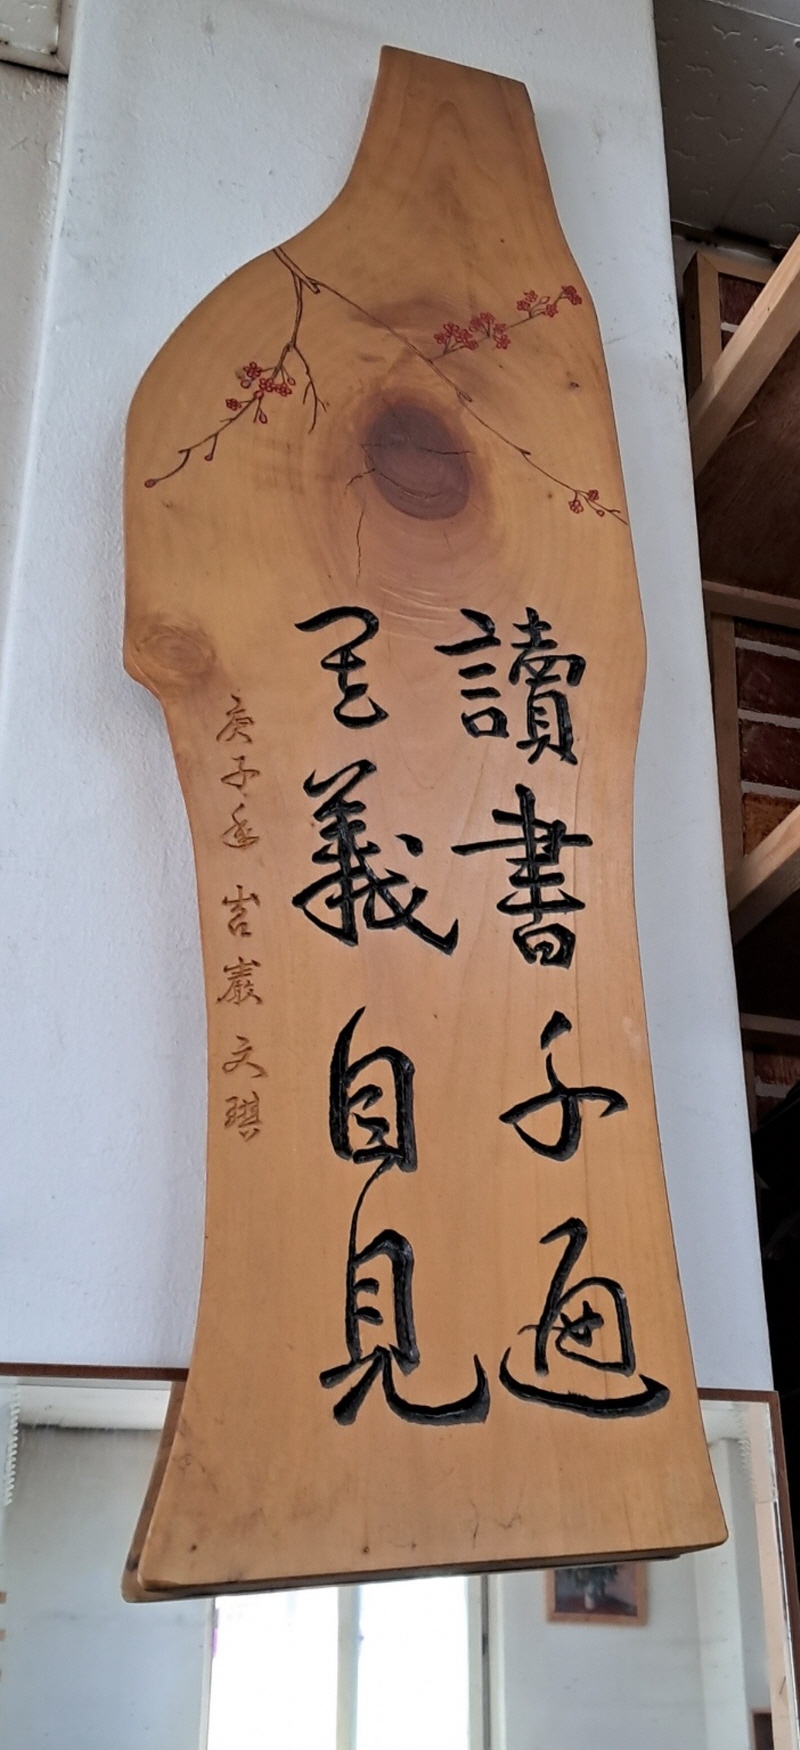 讀書千遍
其義自見
庚子年 巖 文琪